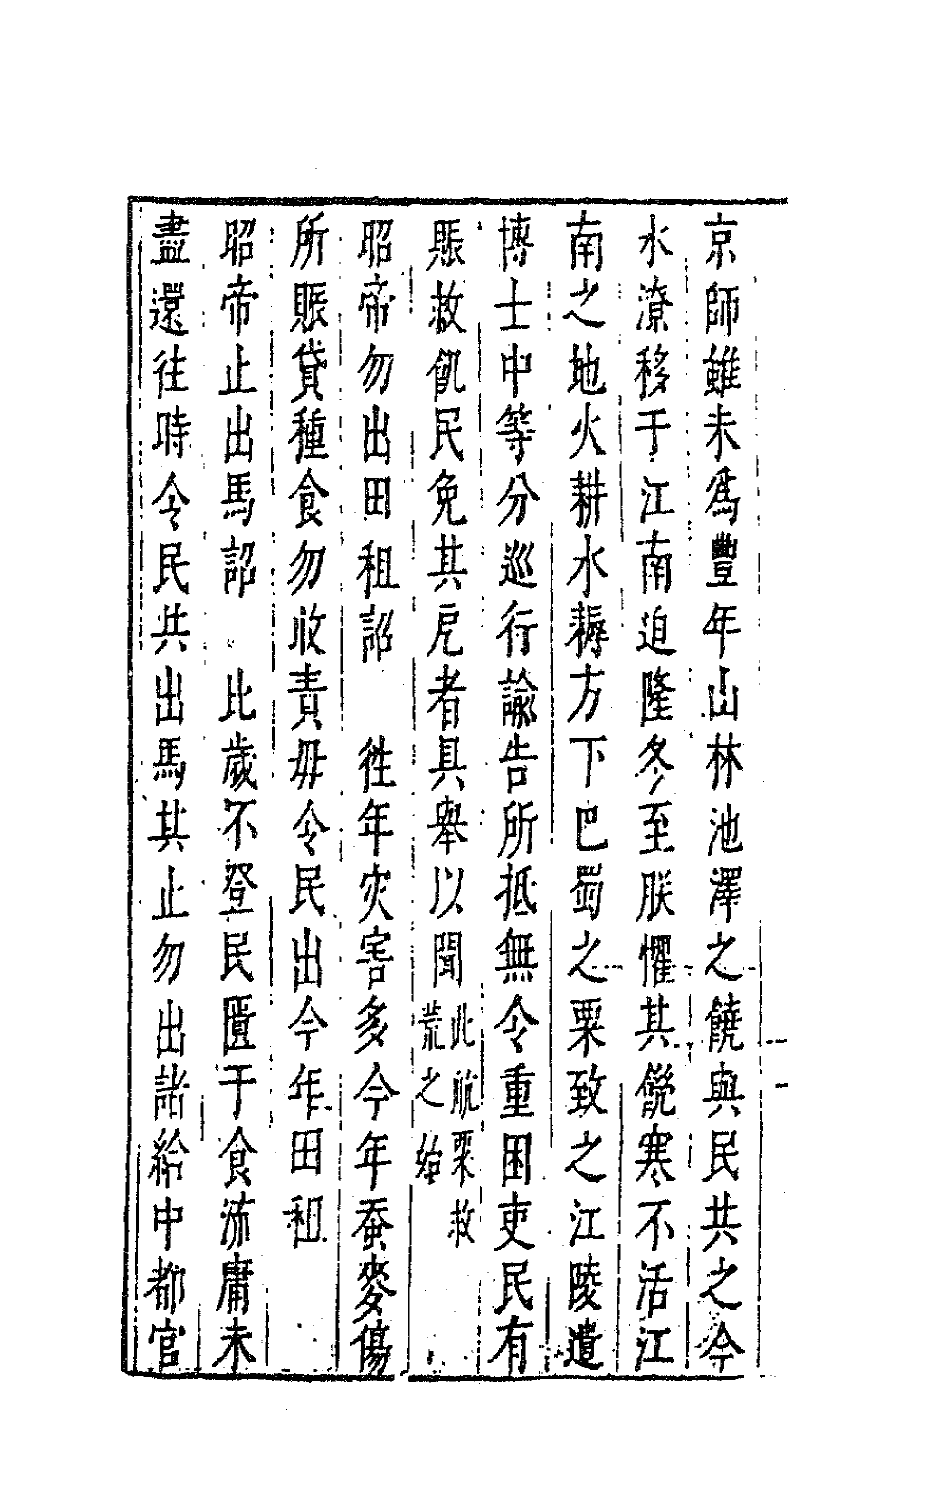 京師雖未爲豐年山林池澤之饒與民共之今
水潦移于江南迫隆冬至朕懼其飢寒不活江
南之地火耕水耨方下巴蜀之粟致之江陵遣
博士中等分巡行諭告所抵無令重困吏民有
賑救飢民免其戹者具舉以聞
此航粟救
荒之始
昭帝勿出田租詔　　徃年灾害多今年蚕麥傷
所賑貸種食勿收責毋令民出今年田租
昭帝止出馬詔　比歲不登民匱于食流庸未
盡還往時令民共出馬其止勿出諸給中都官